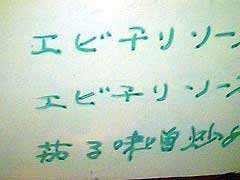 エビチリソース
エビチリソース
茄子味噌炒め